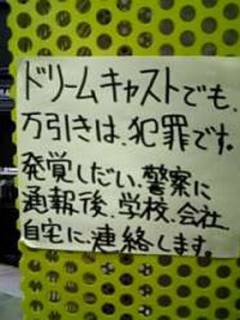 ドリームキャストでも、
万引きは、犯罪です。
発覚しだい、警察に
通報後、学校、会社、
自宅に、連絡します。